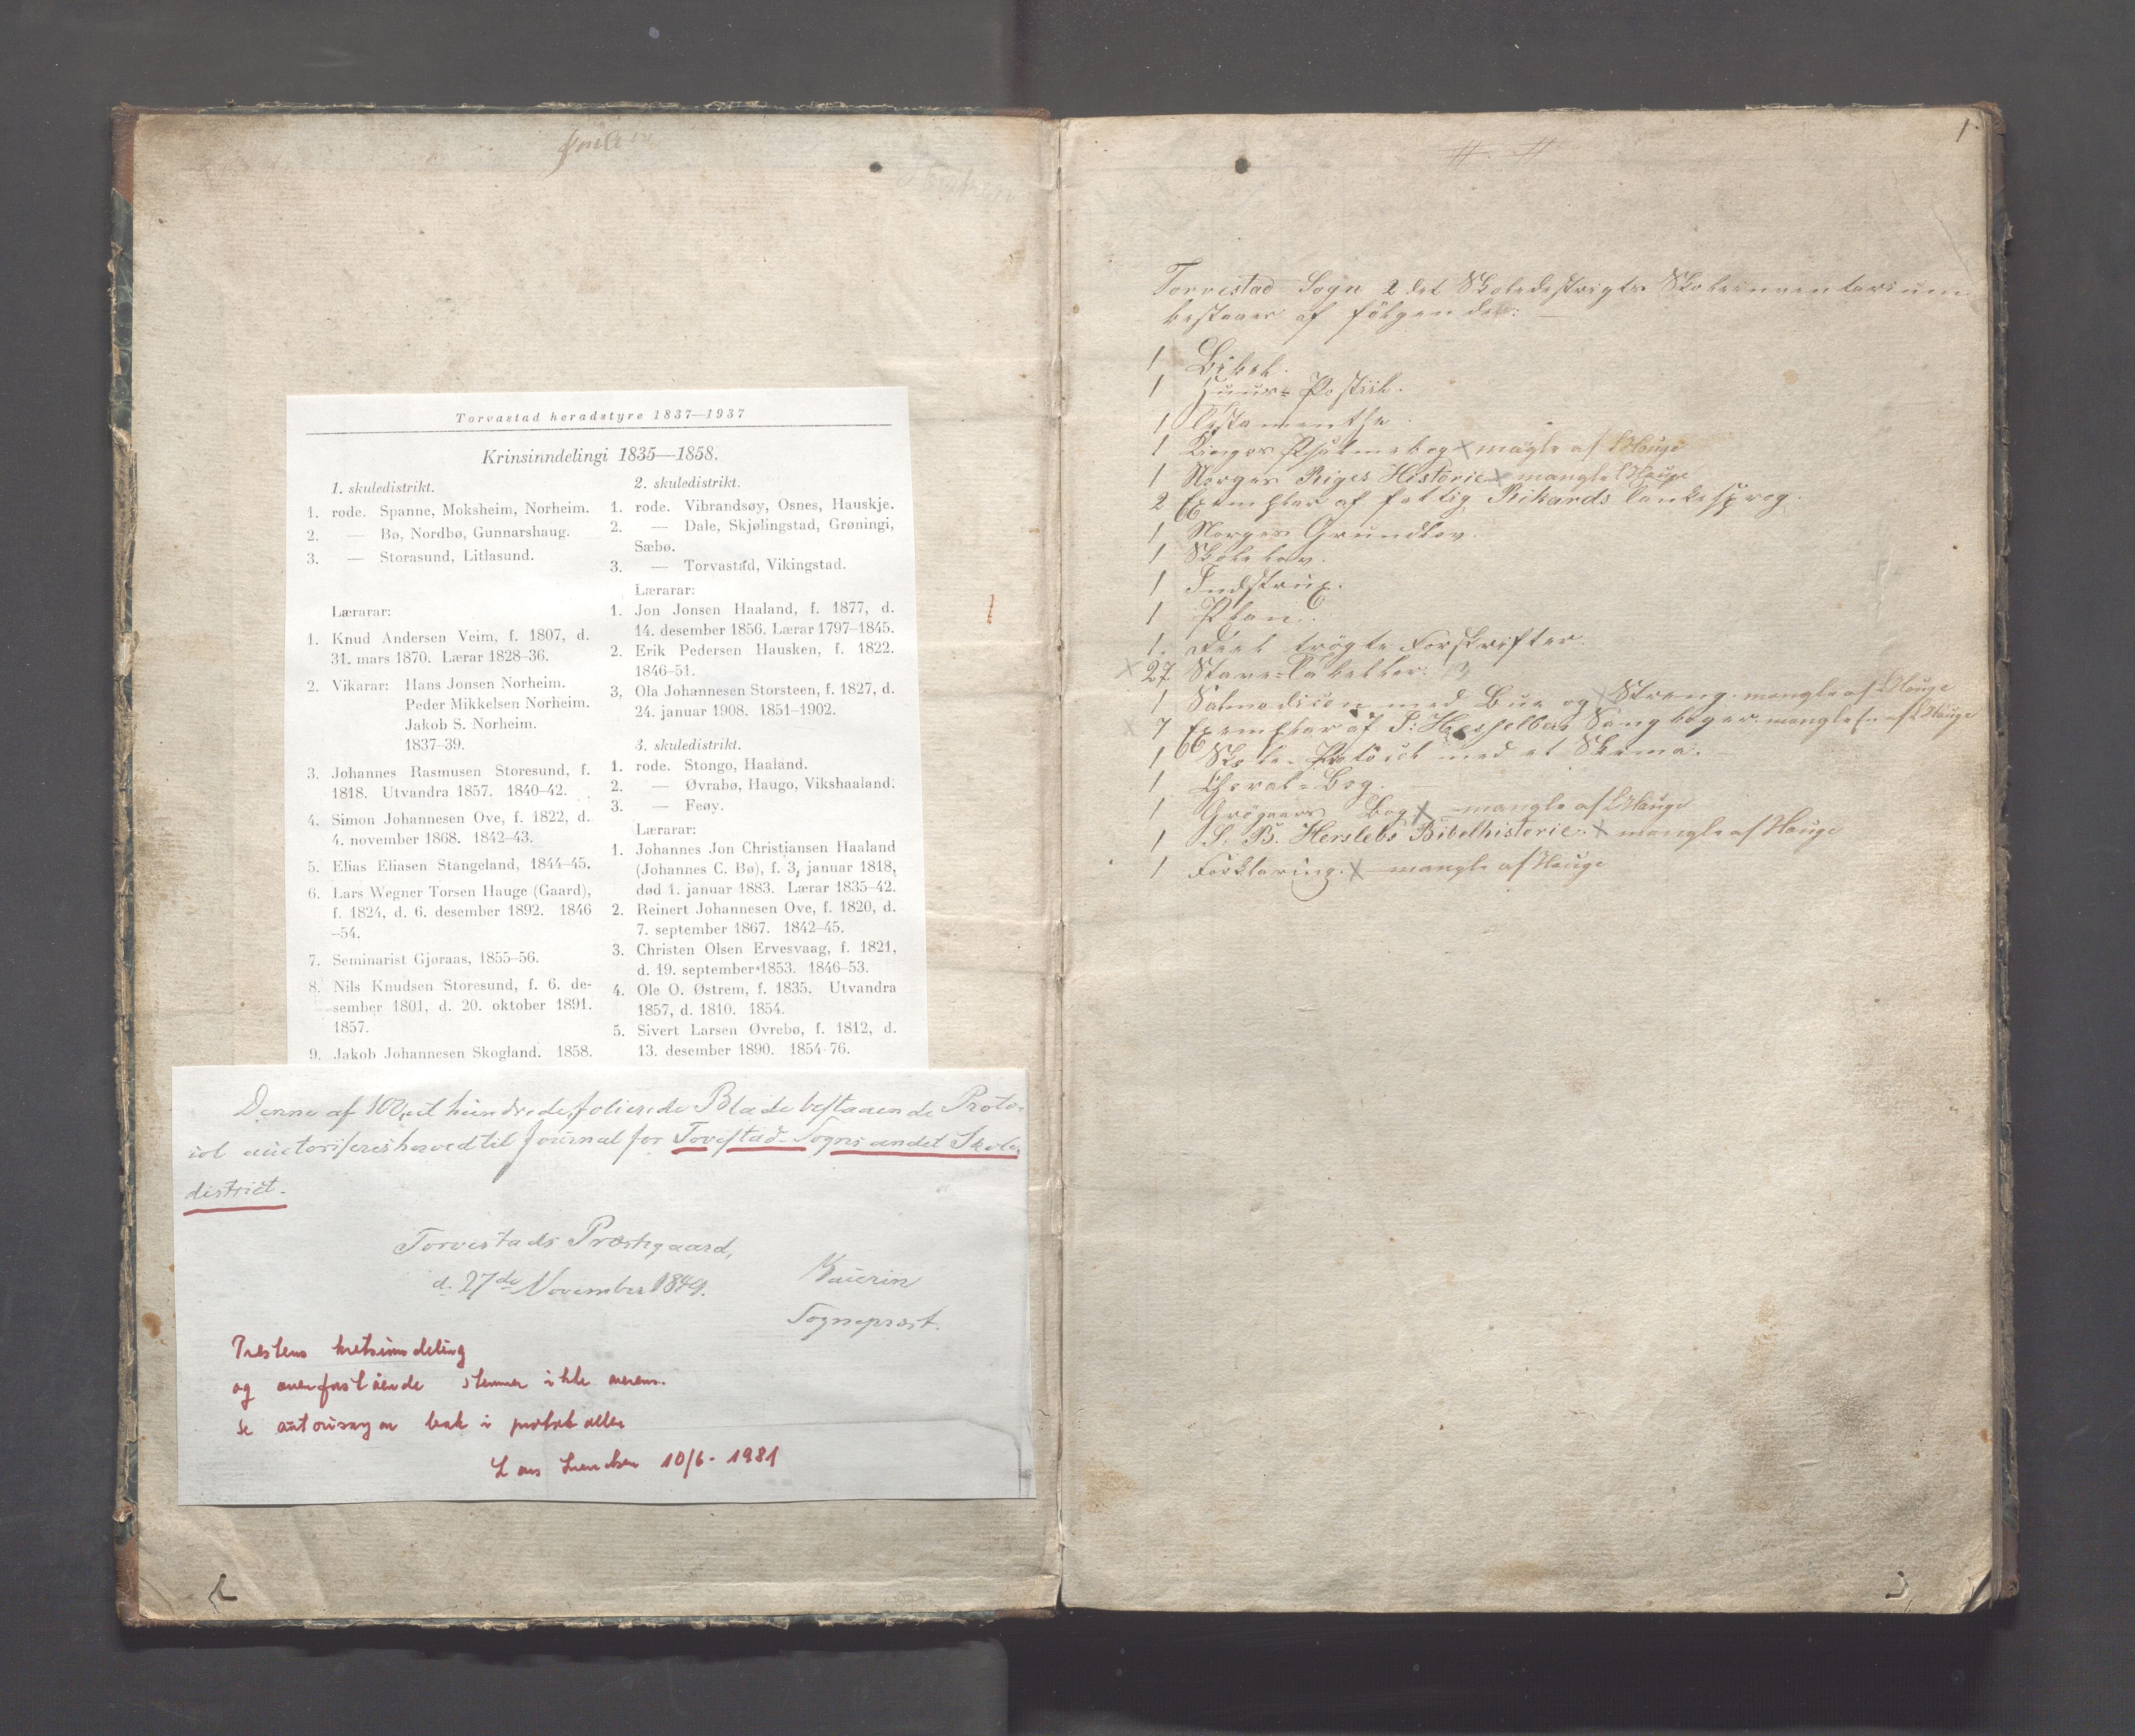 Torvastad heradstyre 1837—1937
Krinsinndelingi 1835—1858.
1. skuledistrikt.
1. rode. Spanne, Moksheim, Norheim.
2. — Bø, Nordbø, Gunnarshaug.
3. — Storasund, Litlasund.
Lærarar:
1. Knud Andersen Veim, f. 1807, d.
31. mars 1870. Lærar 1828–36.
2. Vikarar: Hans Jonsen Norheim.
Peder Mikkelsen Norheim.
Jakob S. Norheim.
1837–39.
3. Johannes Rasmusen Storesund, f.
1818. Utvandra 1857. 1840–42.
4. Simon Johannesen Ove, f. 1822, d.
4. november 1868. 1842–43.
5. Elias Eliasen Stangeland, 1844–45.
6. Lars Wegner Torsen Hauge (Gaard),
f. 1824, d. 6. desember 1892. 1846
–54.
7. Seminarist Gjøraas, 1855–56.
8. Nils Knudsen Storesund, f. 6. de-
sember 1801, d. 20. oktober 1891.
1857.
9. Jakob Johannesen Skogland. 1858.
2. skuledistrikt.
1. rode. Vibrandsøy, Osnes, Hauskje.
2. — Dale, Skjølingstad, Grøningi,
Sæbø.
3. — Torvastad, Vikingstad.
Lærarar:
1. Jon Jonsen Haaland, f. 1877, d.
14. desember 1856. Lærar 1797–1845.
2. Erik Pedersen Hausken, f. 1822.
1846–51.
3. Ola Johannesen Storsteen, f. 1827, d.
24. januar 1908. 1851–1902.
3. skuledistrikt.
1. rode. Stongo, Haaland.
2. — Øvrabø, Haugo, Vikshaaland.
3. — Feøy.
Lærarar:
1. Johannes Jon Christiansen Haaland
(Johannes C. Bø), f. 3, januar 1818,
død 1. januar 1883. Lærar 1835–42.
2. Reinert Johannesen Ove, f. 1820, d.
7. september 1867. 1842–45.
3. Christen Olsen Ervesvaag, f. 1821,
d. 19. september 1853. 1846–53.
4. Ole O. Østrem, f. 1835. Utvandra
1857, d. 1810. 1854.
5. Sivert Larsen Øvrebø, f. 1812, d.
13. desember 1890. 1854–76.
Denne af 100, et hundrede, folierede Blade bestaaende Proto-
col auctoriseres herved til Journal for Torvestad-Sogns andet Skole-
district.
Torvestads Præstegaard,
d. 27de November 1849.
Kaurin
Sogneprest.
Prestens kretsinndeling
og ovenforstående stemmer ikke overens.
Se autorisasjon bak i protokollen
10/6 - 1981
1.
Torvestad Sogn 2det Skoledestrigts Skoleinventarium
bestaaer af følgende: —
1 Bibel.
1 Huus-Postil.
1 Testamenthe
1 Kingos Psalmebog X mangle af LHauge
1 Norges Riges Historie X mangle LHauge
2 Exemplar af fattig Rikards Tankesprog.
1 Norges Grundlov.
1 Skolelov.
1 Indstrux.
1 Plan.
1. Deel trögte Forskrifter.
X 27 Stave-Tabeller.
1 Salmodicon med Bue og Streng. mangle af LHauge
X 7 Exemplar af P: Hesselbers Sangböger. mangle af LHauge
1 Skole-Protocol med et Skema. —
1 Choral-Bog. —
1 Grögaars Bog X — mangle af LHauge
1 S. B. Herslebs Bibelhistorie. X mangle af Hauge
1 Forklaring. X — mangle af Hauge